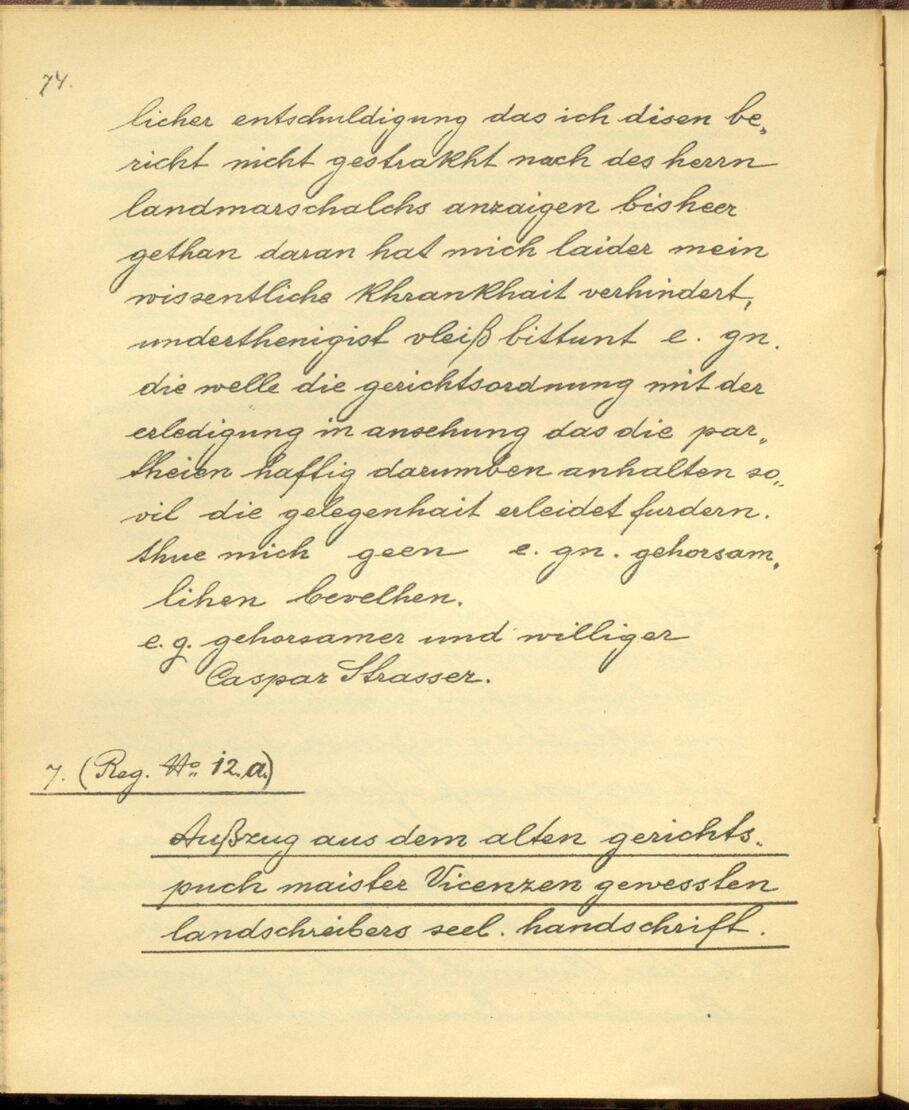 74.
licher entschuldigung das ich disen be„
richt nicht gestrakht nach des herrn
landmarschalchs anzaigen bisheer
gethan daran hat mich laider mein
wissentliche khrankhait verhindert,
underthenigist vleiß bittunt e. gn.
die welle die gerichtsordnung mit der
erledigung in ansehung das die par„
theien haftig darumben anhalten so„
vil die gelegenhait erleidet furdern.
thue mich geen e. gn. gehorsam„
lihen bevelhen.
e. g. gehorsamer und williger
Caspar Strasser.
7. (Reg. No: 12.a.)
Außzug aus dem alten gerichts„
puch maister Vicenzen gewessten
landschreibers seel. handschrift.